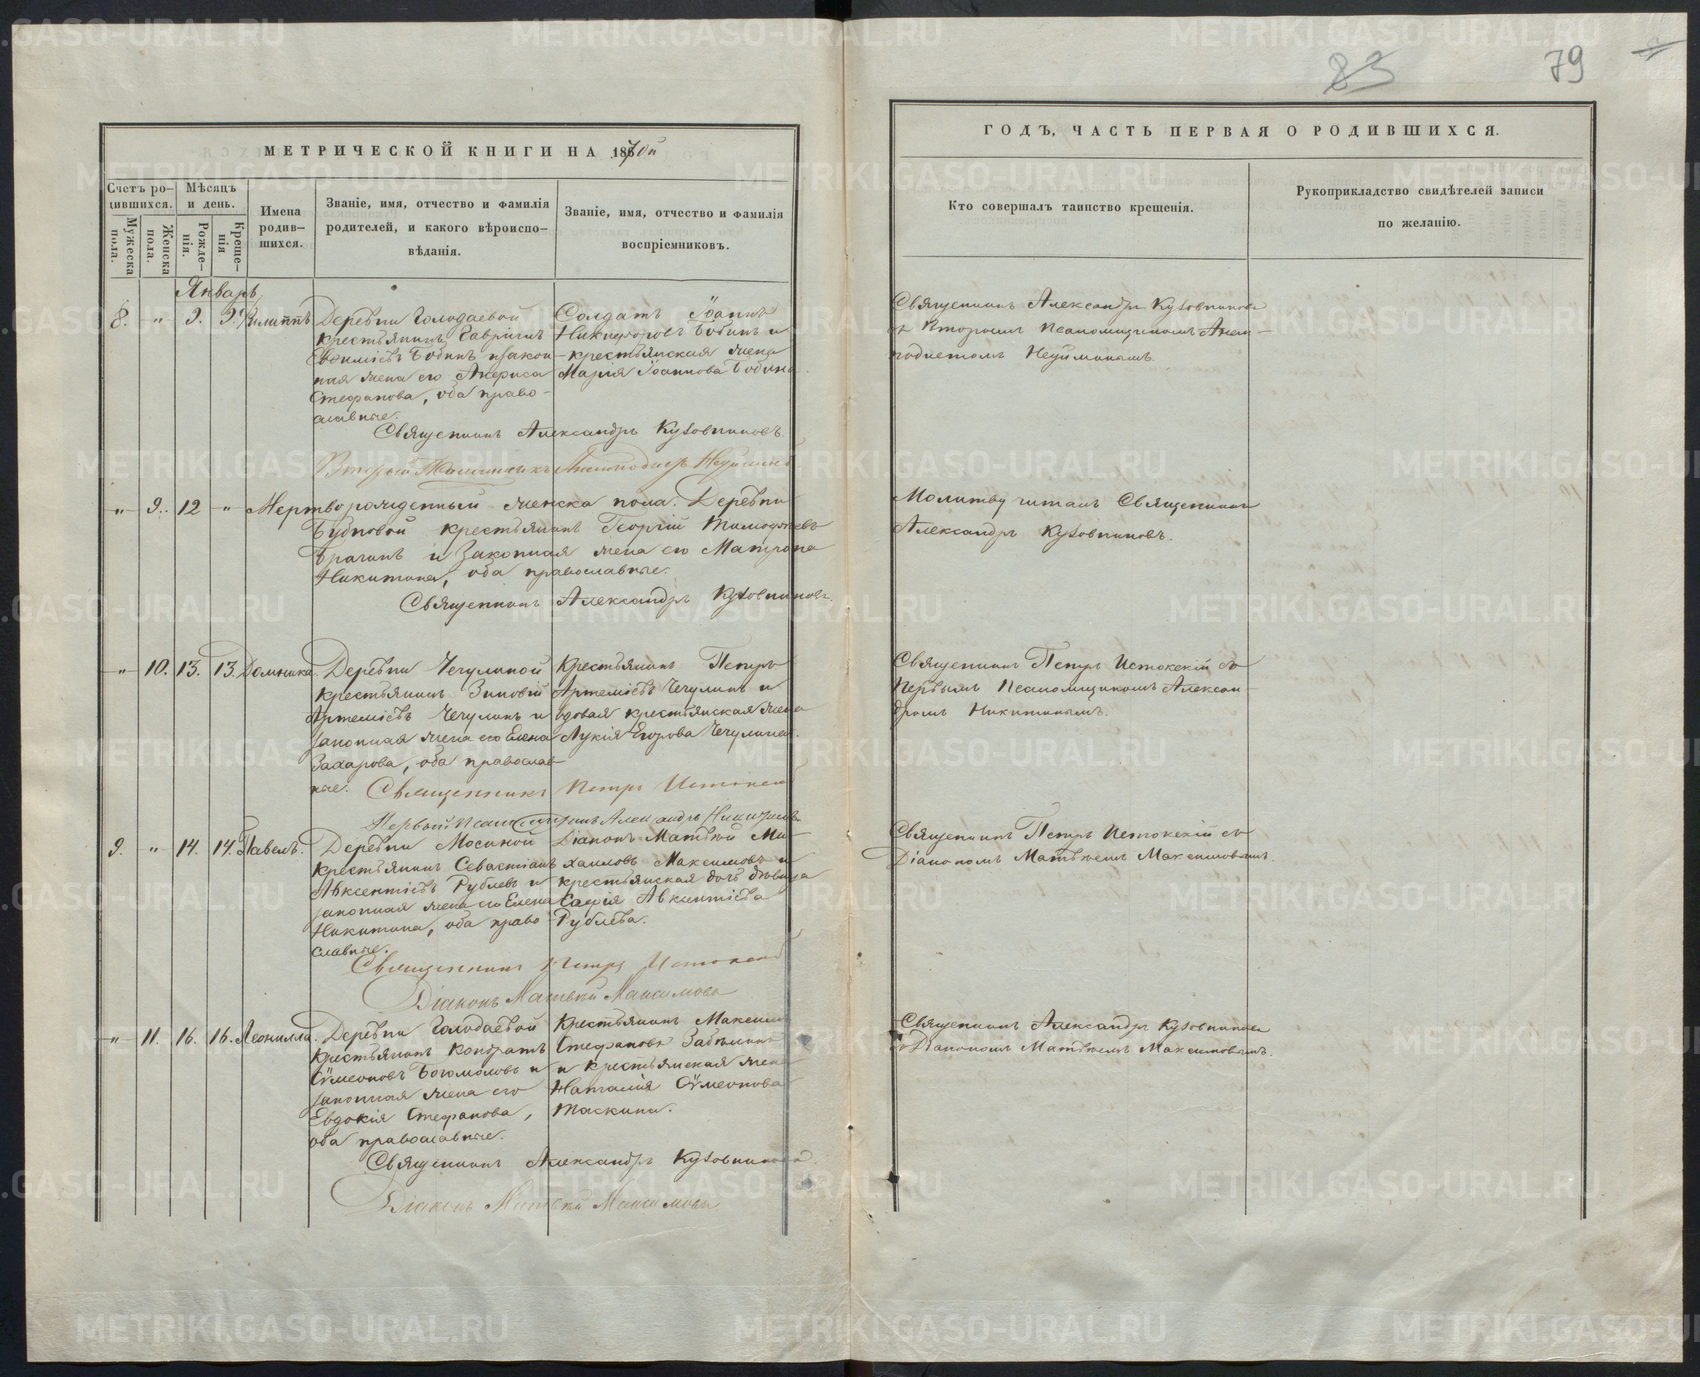 83
79
МЕТРИЧЕСКОЙ КНИГИ НА 1870й
ГОДЪ, ЧАСТЬ ПЕРВАЯ О РОДИВШИХСЯ.
Счетъ ро-
дившихся.
Мужеска
пола.
Женска
пола.
Мѣсяцъ
и день.
Рожде-
нія.
Креще-
нія
Имена
родив-
шихся.
Званіе, имя, отчество и фамилія
родителей, и какого вѣроиспо-
вѣданія.
Званіе, имя, отчество и фамилія
воспріемниковъ.
Кто совершалъ таинство крещенія.
Рукоприкладство свидѣтелей записи
по желанію.
Январь
8. " 9. 9. Филиппъ
Деревни Голодаевой
крестьянинъ Гавріилъ
Бобинъ и закон-
ная жена его
Стефанова, оба право-
славные.
Солдатъ Іоаннъ
Никифоровъ Бобинъ и
крестьянская жена
Марія Іоаннова Бобина.
Священникъ Александръ Кузовниковъ
Второй Псаломщикъ
Священникъ Александръ Кузовниковъ
съ Вторымъ Псаломщикомъ Анем-
подистомъ Неуйминымъ.
" 9. 12 " Мертворожденный женска пола. Деревни
Бубновой крестьянинъ Георгій Тимофѣевъ
Брагинъ и законная жена его Матрона
Никитина, оба православные.
Священникъ Александръ Кузовниковъ
Молитву читалъ Священникъ
Александръ Кузовниковъ.
" 10. 13. 13. Домника.
Деревни Чечулиной
крестьянинъ Зиновій
Артеміевъ Чечулинъ и
законная жена его Елена
Захарова, оба православ-
ные.
Крестьянинъ Петръ
Артеміевъ Чечулинъ и
вдовая крестьянская жена
Лукія Егорова Чечулина.
Священникъ Петръ Истокскій
Первый Псаломщикъ Александръ Никитинъ
Священникъ Петръ Истокскій съ
Первымъ Псаломщикомъ Алексан-
дромъ Никитинымъ.
9. " 14. 14. Павелъ.
Деревни Мосиной
крестьянинъ Севастіанъ
Авксентіевъ Рублевъ и
законная жена его Елена
Никитина, оба право-
славные.
Діаконъ Матвѣй Ми-
хаиловъ Максимовъ и
крестьянская дочь дѣвица
Софія Авксентіева
Рублева.
Священникъ Петръ Истокскій
Діаконъ Матвѣй Максимовъ
Священникъ Петръ Истокскій съ
Діакономъ Матвѣемъ Максимовымъ.
" 11. 16. 16. Леонилла.
Деревни Голодаевой
крестьянинъ Кондратъ
Сѵмеоновъ Богомоловъ и
законная жена его
Евдокія Стефанова,
оба православные.
Крестьянинъ Максимъ
Стефановъ Забѣлинъ
и крестьянская жена
Наталія Сѵмеонова
Таскина.
Священникъ Александръ Кузовниковъ
Діаконъ Матвѣй Максимовъ
Священникъ Александръ Кузовниковъ
съ Діакономъ Матвѣемъ Максимовымъ.
METRIKI.GASO-URAL.RU